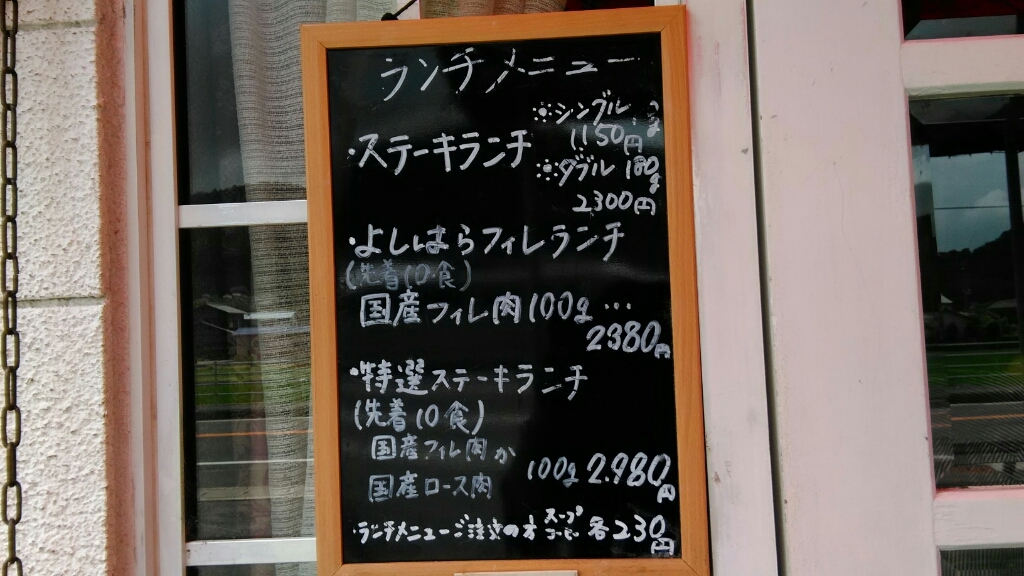 ランチメニュー
・ステーキランチ
※シングル
1150円
※ダブル 180g
2300円
・よしはらフィレランチ
(先着10食)
国産フィレ肉100g…
2380円
・特選ステーキランチ
(先着10食)
国産フィレ肉か
国産ロース肉 100g 2.980円
・ランチメニューご注文の方 スープ コーヒー 各230円